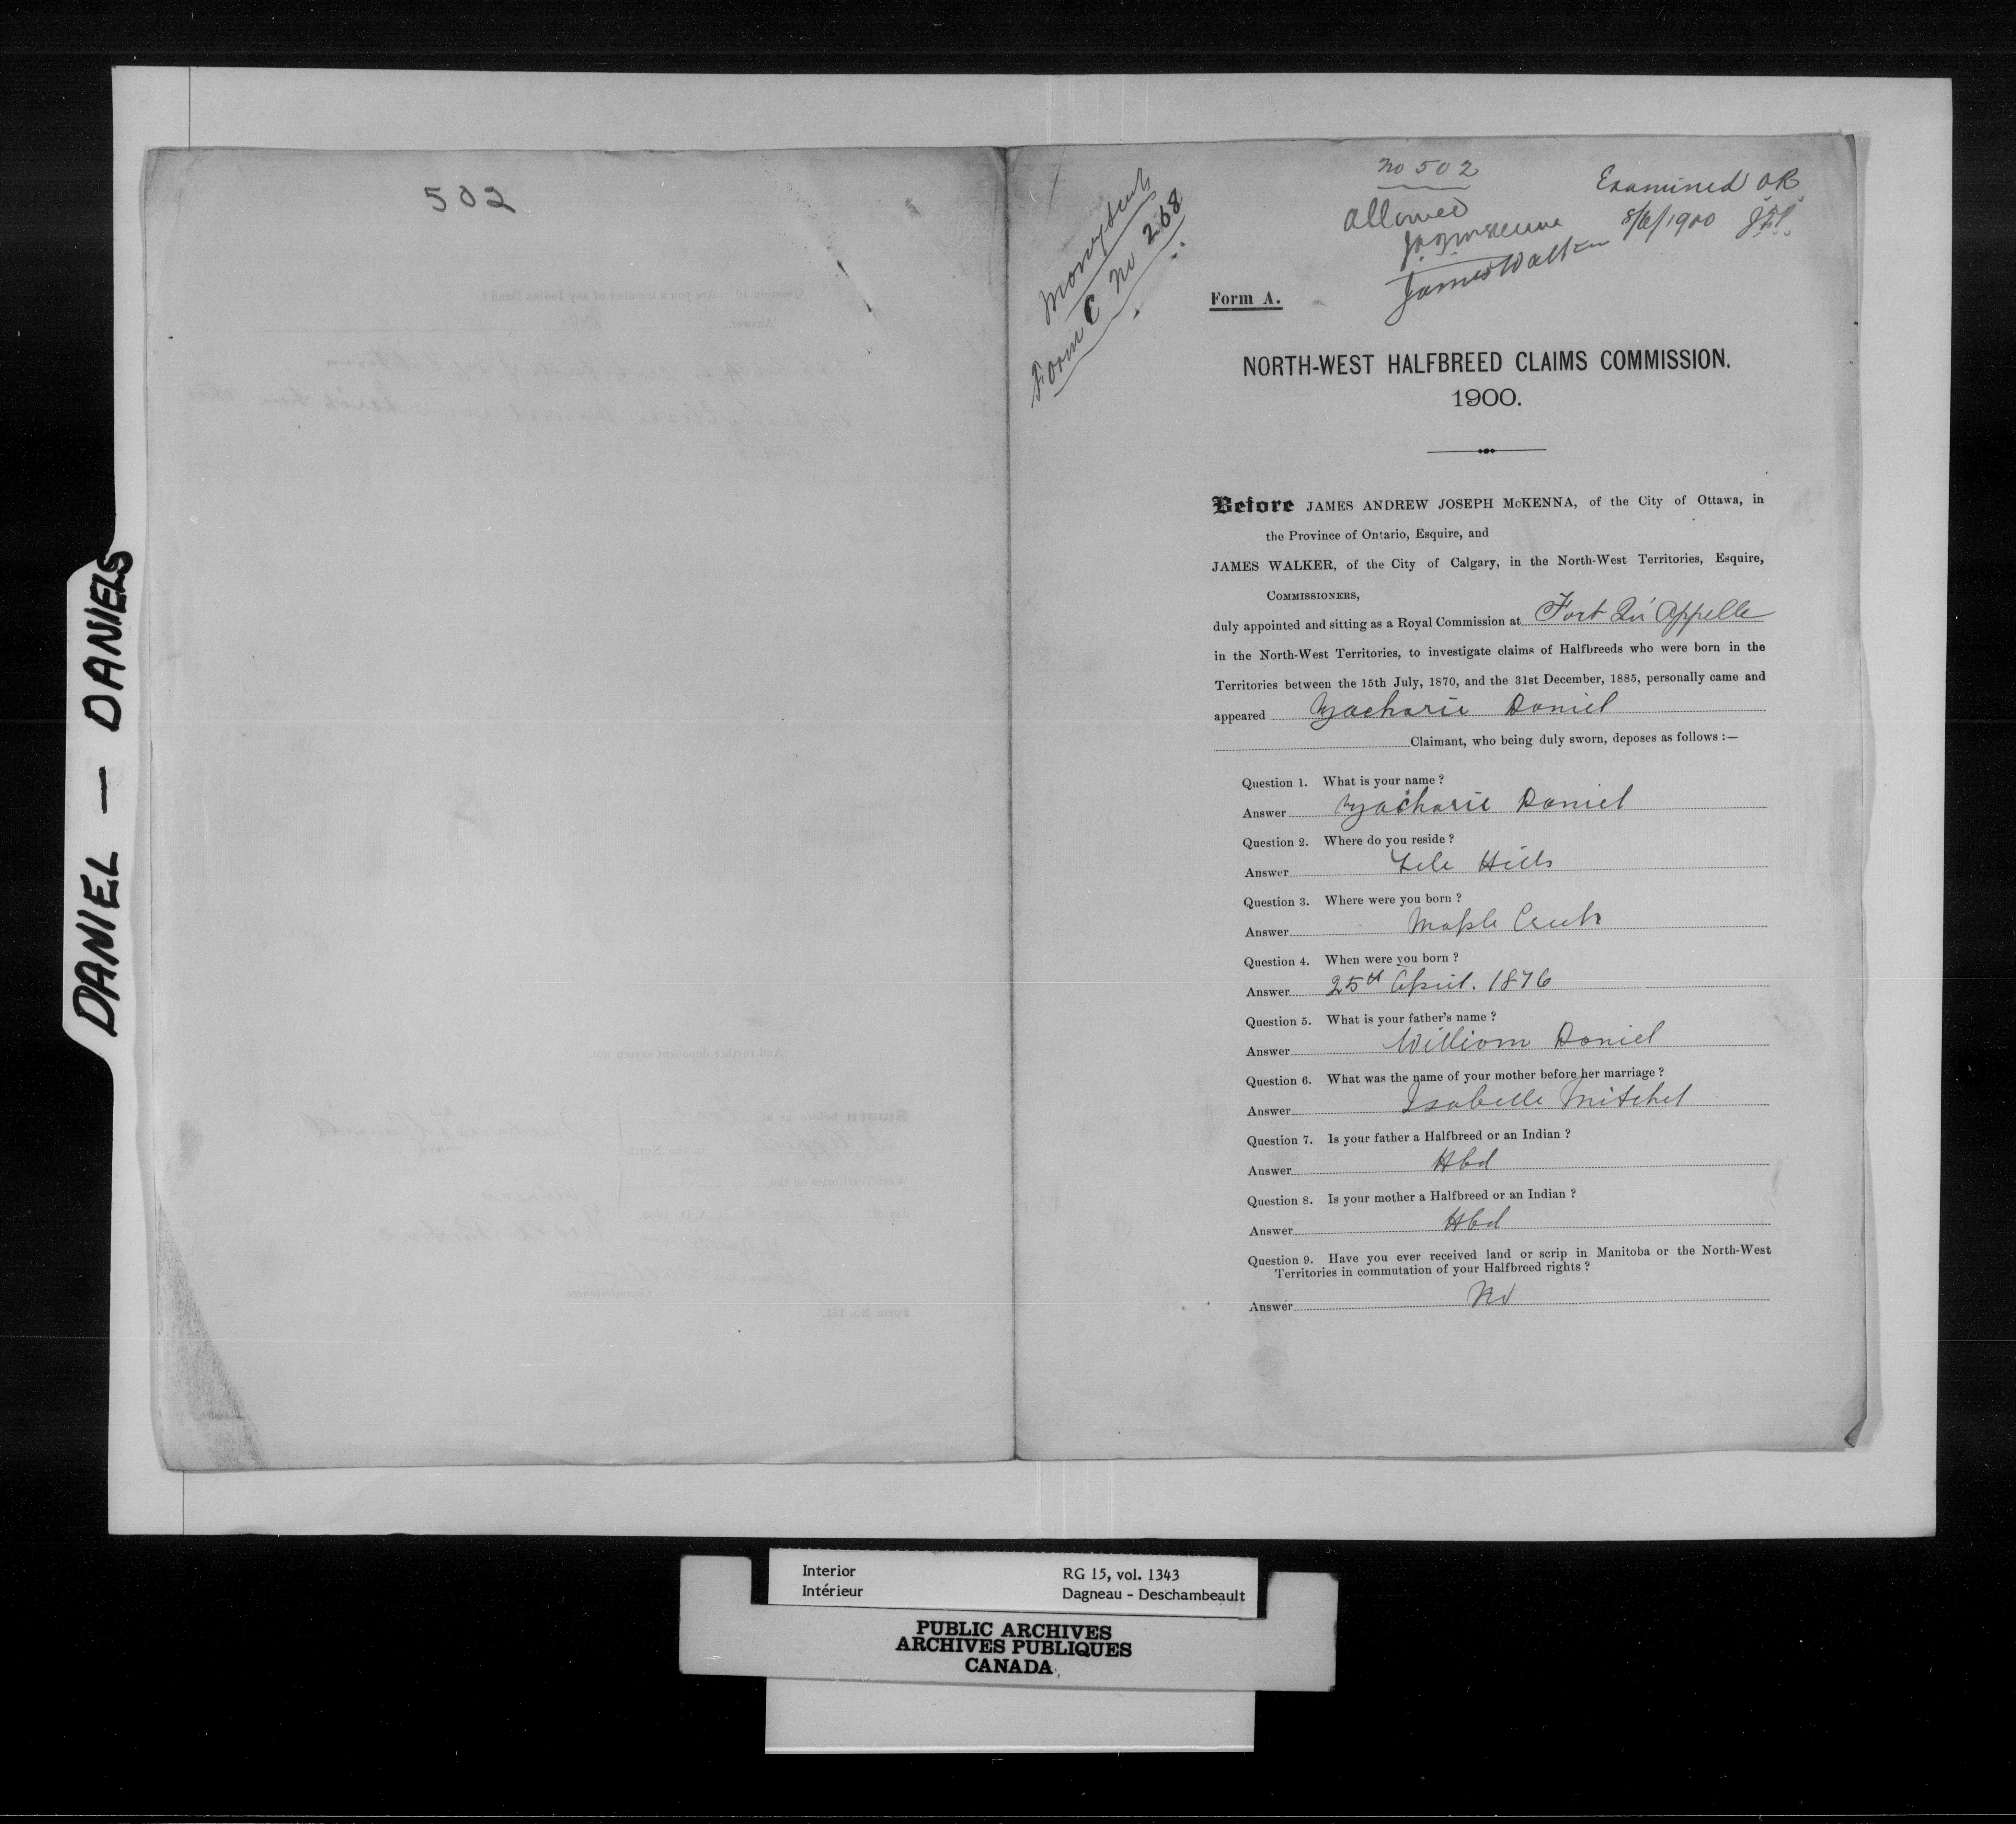 DANIEL — DANIELS
502
Money Scrip
Form C No 268
No 502
Allowed
J.A.J. McKenna
James Walker
Examined OK
8/6/1900
Form A.
NORTH-WEST HALFBREED CLAIMS COMMISSION.
1900.
Before JAMES ANDREW JOSEPH McKENNA, of the City of Ottawa, in
the Province of Ontario, Esquire, and
JAMES WALKER, of the City of Calgary, in the North-West Territories, Esquire,
COMMISSIONERS,
duly appointed and sitting as a Royal Commission at Fort Qu'Appelle
in the North-West Territories, to investigate claims of Halfbreeds who were born in the
Territories between the 15th July, 1870, and the 31st December, 1885, personally came and
appeared Zacharie Daniel
Claimant, who being duly sworn, deposes as follows :—
Question 1. What is your name ?
Answer Zacharie Daniel
Question 2. Where do you reside ?
Answer File Hills
Question 3. Where were you born ?
Answer Maple Creek
Question 4. When were you born ?
Answer 25th April. 1876
Question 5. What is your father's name ?
Answer William Daniel
Question 6. What was the name of your mother before her marriage ?
Answer Isabelle Mitchel
Question 7. Is your father a Halfbreed or an Indian ?
Answer Hbd
Question 8. Is your mother a Halfbreed or an Indian ?
Answer Hbd
Question 9. Have you ever received land or scrip in Manitoba or the North-West
Territories in commutation of your Halfbreed rights ?
Answer No
Interior
Intérieur
RG 15, vol. 1343
Dagneau - Deschambeault
PUBLIC ARCHIVES
ARCHIVES PUBLIQUES
CANADA